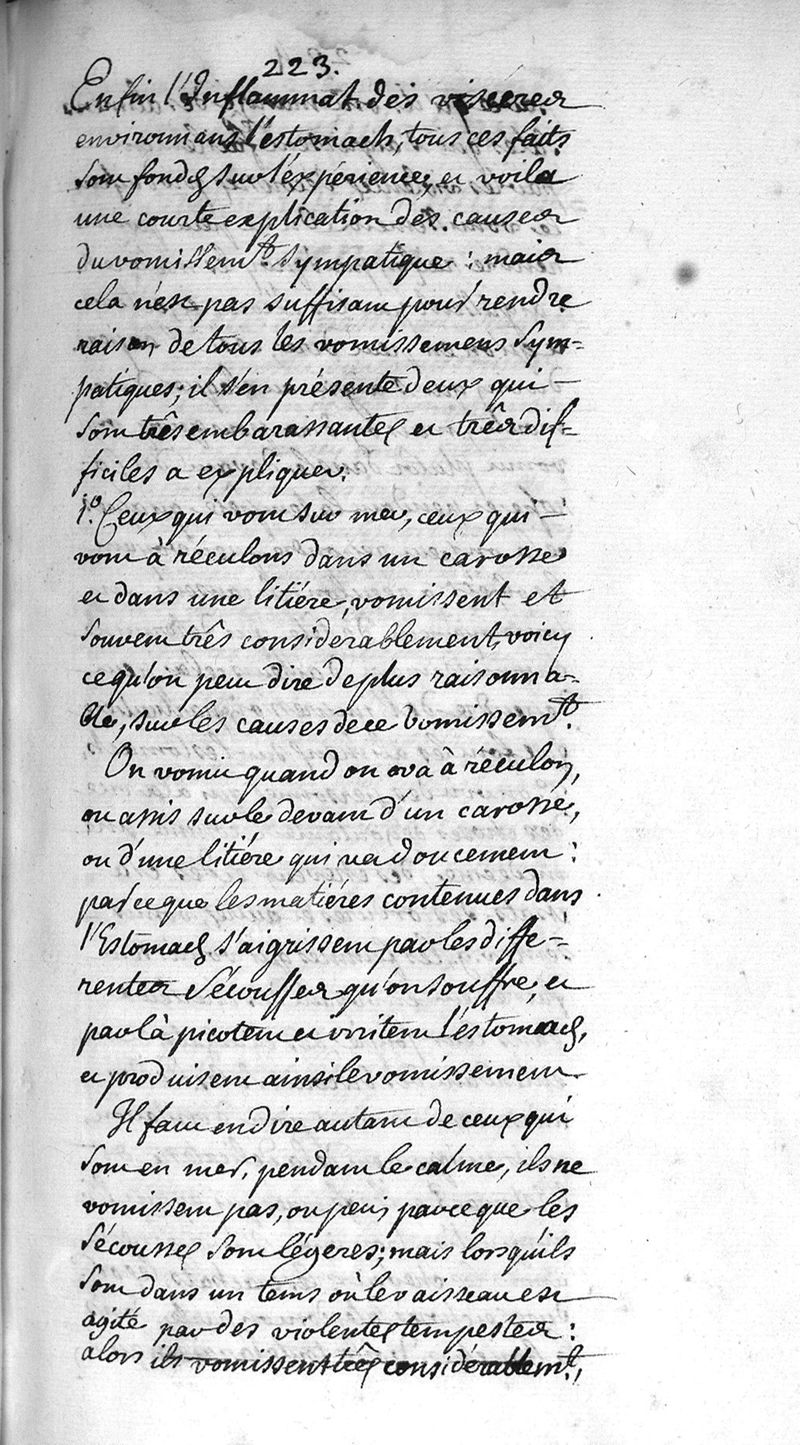 223.
Enfin l'Inflammat. dès viscères
environnans l'estomach, tous ces faits
sont fondés sur l'éxpérience, et voila
une courte explication dès causes
du vomissemt. sympatique : mais
cela n'est pas suffisant pour rendre
raison de tous les vomissemens Sym=
patiques; il s'en présente deux qui -
sont trés embarassantes et très dif=
ficiles a expliquer.
1°. Ceux qui vont sur mer, ceux qui -
vont à réculons dans un carosse
et dans une litiére, vomissent et
souvent trés considérablement, voicy
ce qu'on peut dire de plus raisonna=
ble, sur les causes de ce vomissemt.
On vomit quand on va à réculon,
ou assis sur le devant d'un carosse,
ou d'une litiére qui va doucement :
parce que les matiéres contenues dans
l'Estomach s'aigrissent par les diffé=
rentes sécousses qu'on souffre, et
par là picotent et irritent l'éstomach,
et produisent ainsi le vomissement.
Il faut en dire autant de ceux qui
sont en mer, pendant le calme, ils ne
vomissent pas, ou peu, parce que les
sécousses sont légeres; mais lorsqu'ils
sont dans un tems où le vaisseau est
agité par des violentes tempestes :
alors ils vomissent très considérablemt,